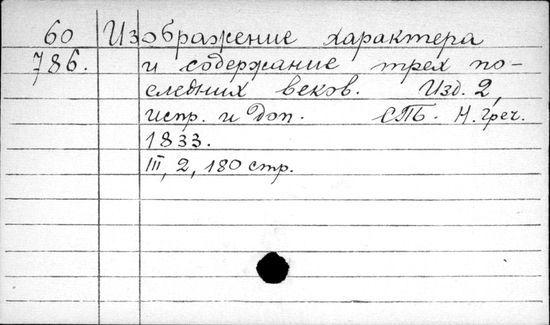 60 Изображение характера
786. и содержание трех по-
следних веков. Изд. 2,
испр. и доп. СПБ. Н. Греч.
1833.
III, 2, 180 стр.